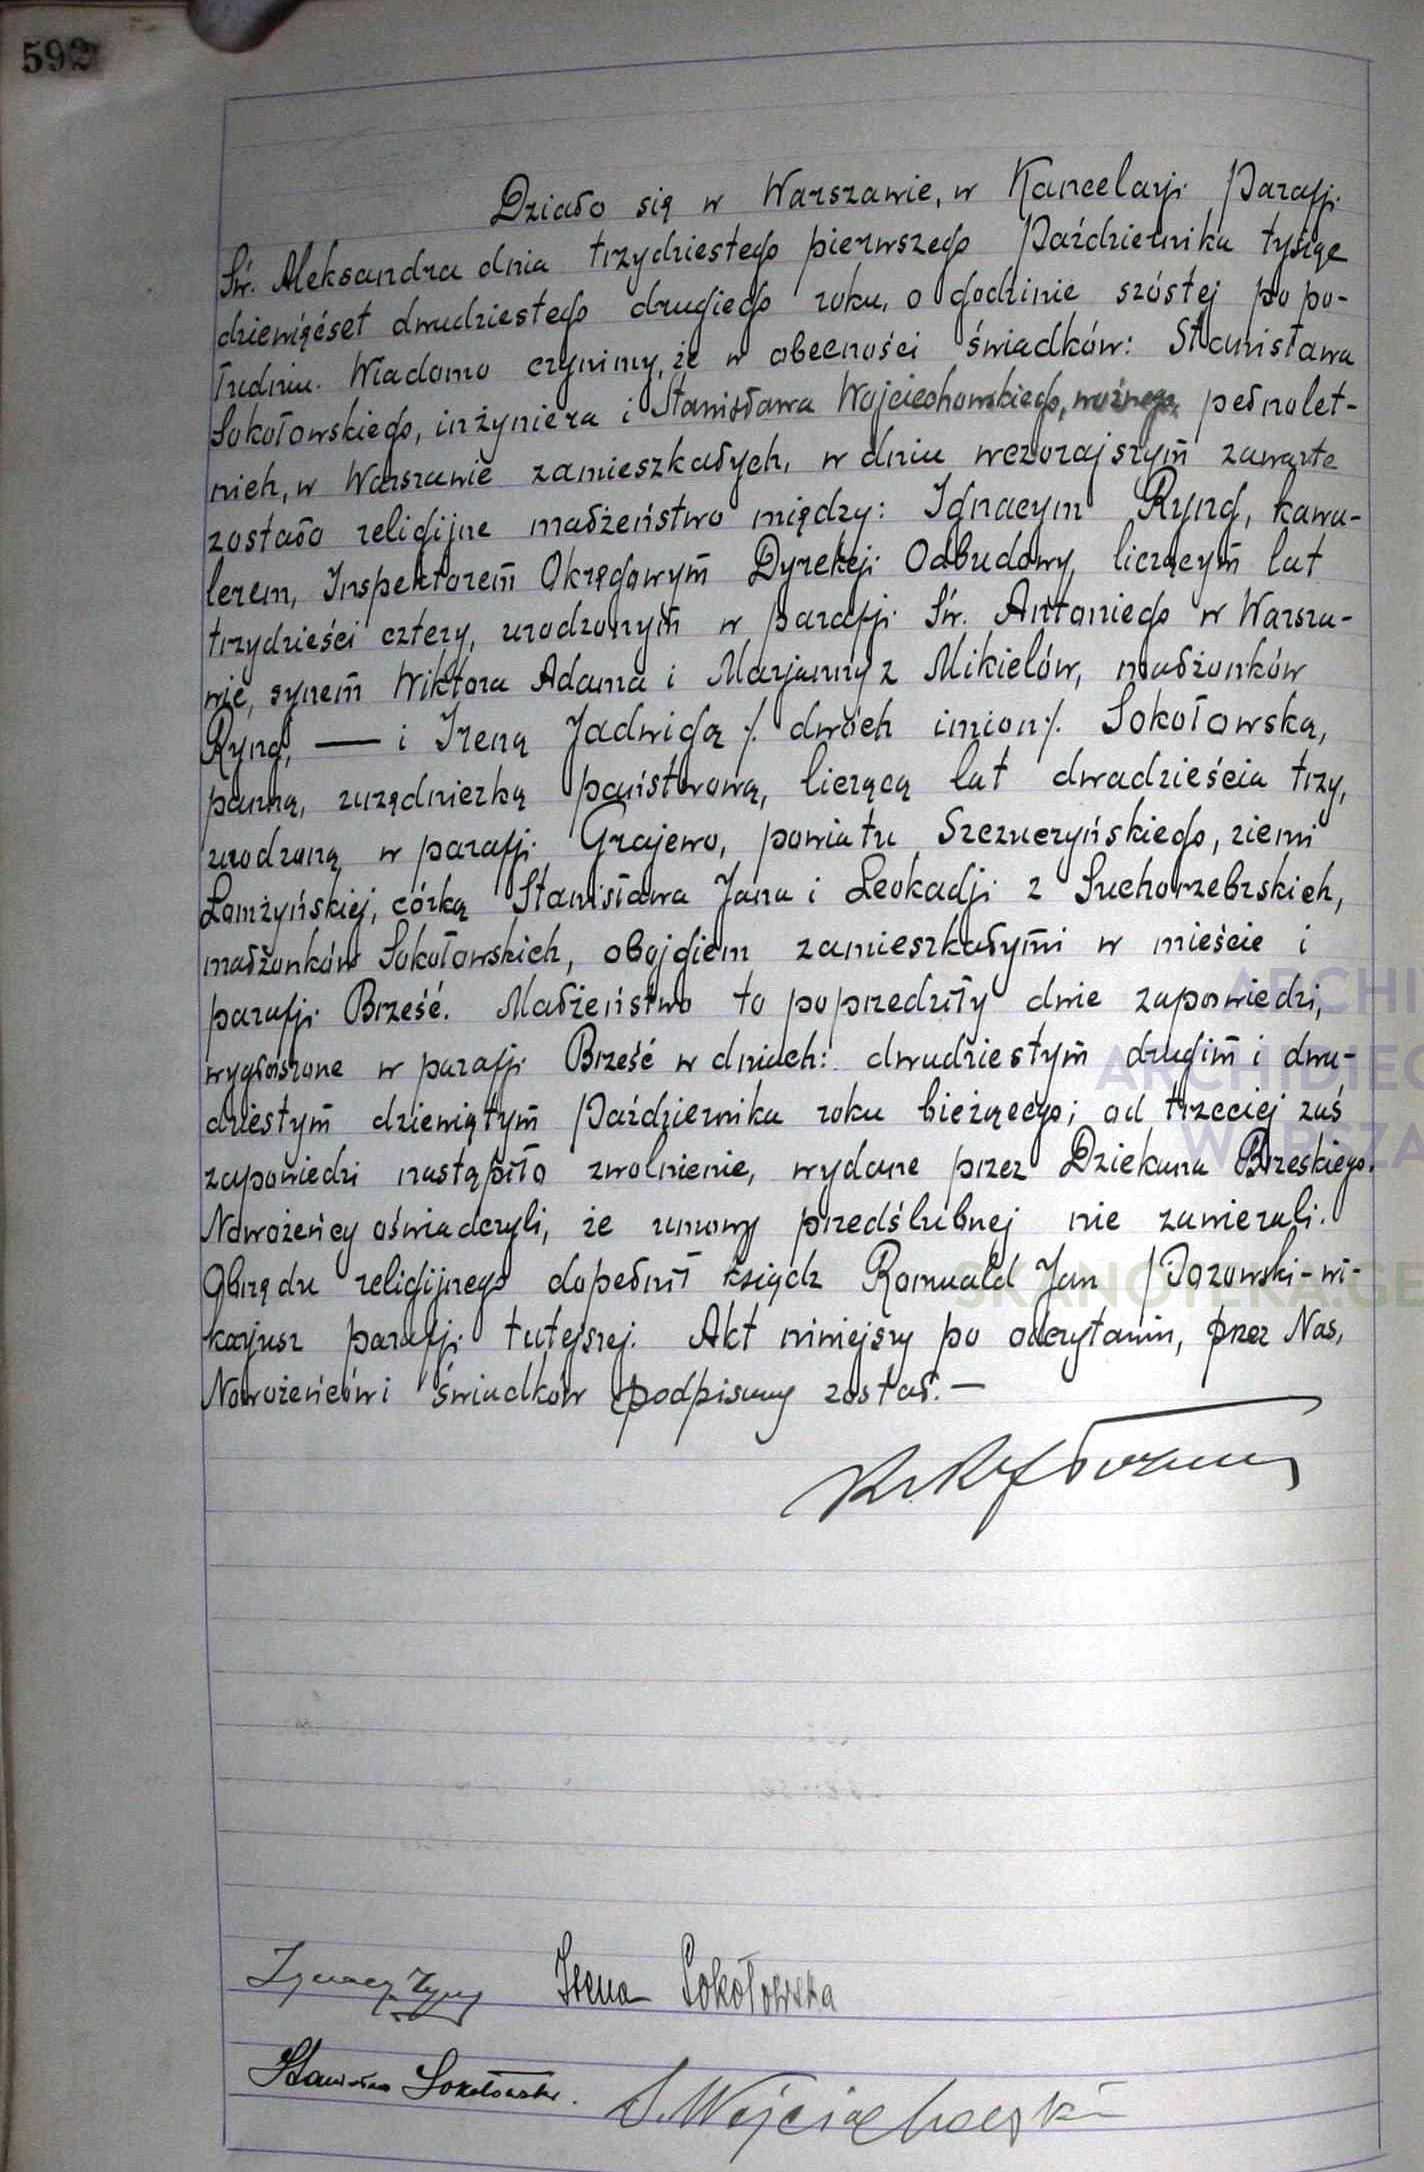 592
Działo się w Warszawie, w Kancelarji Parafji
Św. Aleksandra dnia trzydziestego pierwszego Października tysiąc
dziewięćset dwudziestego drugiego roku, o godzinie szóstej po po-
łudniu. Wiadomo czynimy, że w obecności świadków: Stanisława
Sokołowskiego, inżyniera i Stanisława Wojciechowskiego, woźnego, pełnolet-
nich, w Warszawie zamieszkałych, w dniu wczorajszym zawarte
zostało religijne małżeństwo między: Ignacym Ryng, kawa-
lerem, Inspektorem Okręgowym Dyrekcji Odbudowy, liczącym lat
trzydzieści cztery, urodzonym w parafji Św. Antoniego w Warsza-
wie, synem Wiktora Adama i Marjanny z Mikielów, małżonków
Ryng, — i Ireną Jadwigą /. dwóch imion /. Sokołowską,
panną, urzędniczką państwową, liczącą lat dwadzieścia trzy,
urodzoną w parafji Grajewo, powiatu Szczuczyńskiego, ziemi
Łomżyńskiej, córką Stanisława Jana i Leokadji z Suchorzebrskich,
małżonków Sokołowskich, obojgiem zamieszkałymi w mieście i
parafji Brześć. Małżeństwo to poprzedziły dwie zapowiedzi,
wygłoszone w parafji Brześć w dniach: dwudziestym drugim i dwu-
dziestym dziewiątym Października roku bieżącego; od trzeciej zaś
zapowiedzi nastąpiło zwolnienie, wydane przez Dziekana Brzeskiego.
Nowożeńcy oświadczyli, że umowy przedślubnej nie zawierali.
Obrzędu religijnego dopełnił ksiądz Romuald Jan -wi-
karjusz parafji tutejszej. Akt niniejszy po odczytaniu, przez Nas,
Nowożeńców i świadków podpisany został. —
Ignacy Ryng Irena Sokołowska
Stanisław Sokołowski. S. Wojciechowski
ARCHI
ARCHIDIEC
WARSZA
SKANOTEKA.GE